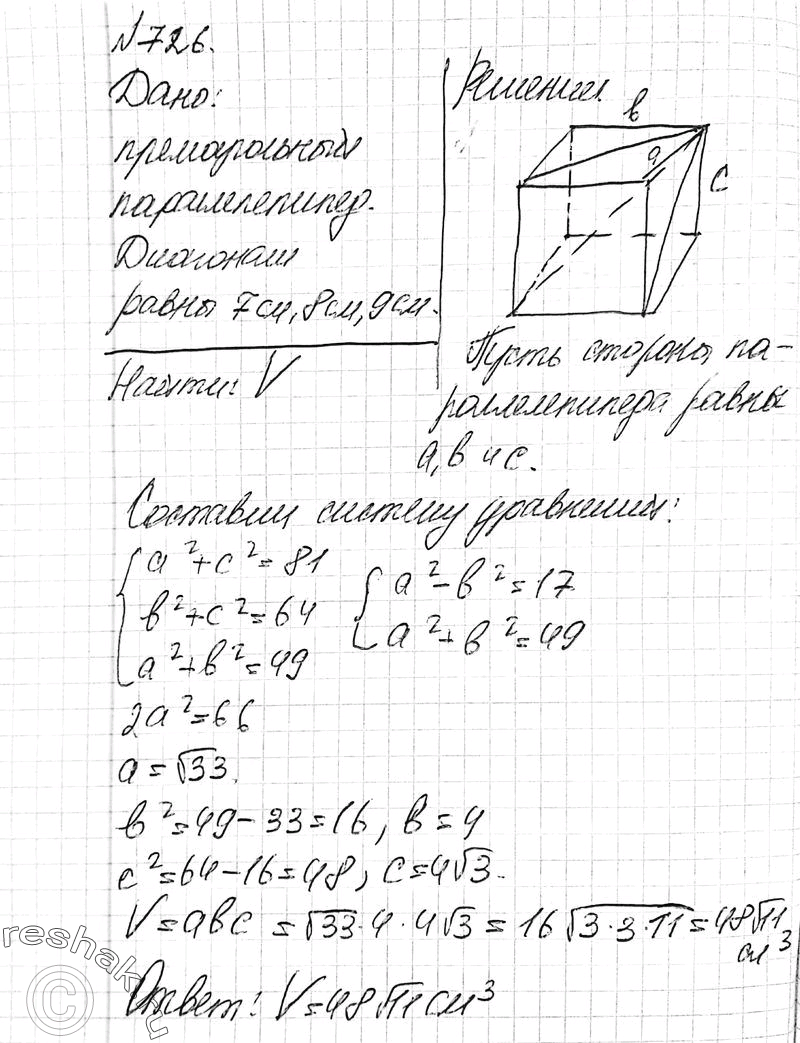 №726.
Дано:
прямоугольный
параллелепипед.
Диагонали
равны 7см, 8см, 9см.
Найти: V
Решение.
в
а
с
Пусть стороны па-
раллелепипеда равны
а, в и с.
Составим систему уравнений:
а²+с²=81
в²+с²=64
а²+в²=49
а²-в²=17
а²+в²=49
2а²=66
а=√33.
в²=49-33=16, в=4
с²=64-16=48, с=4√3.
V=авс=√33·4·4√3=16√3·3·11=48√11
см³
Ответ: V=48√11 см³
reshak.ru
©